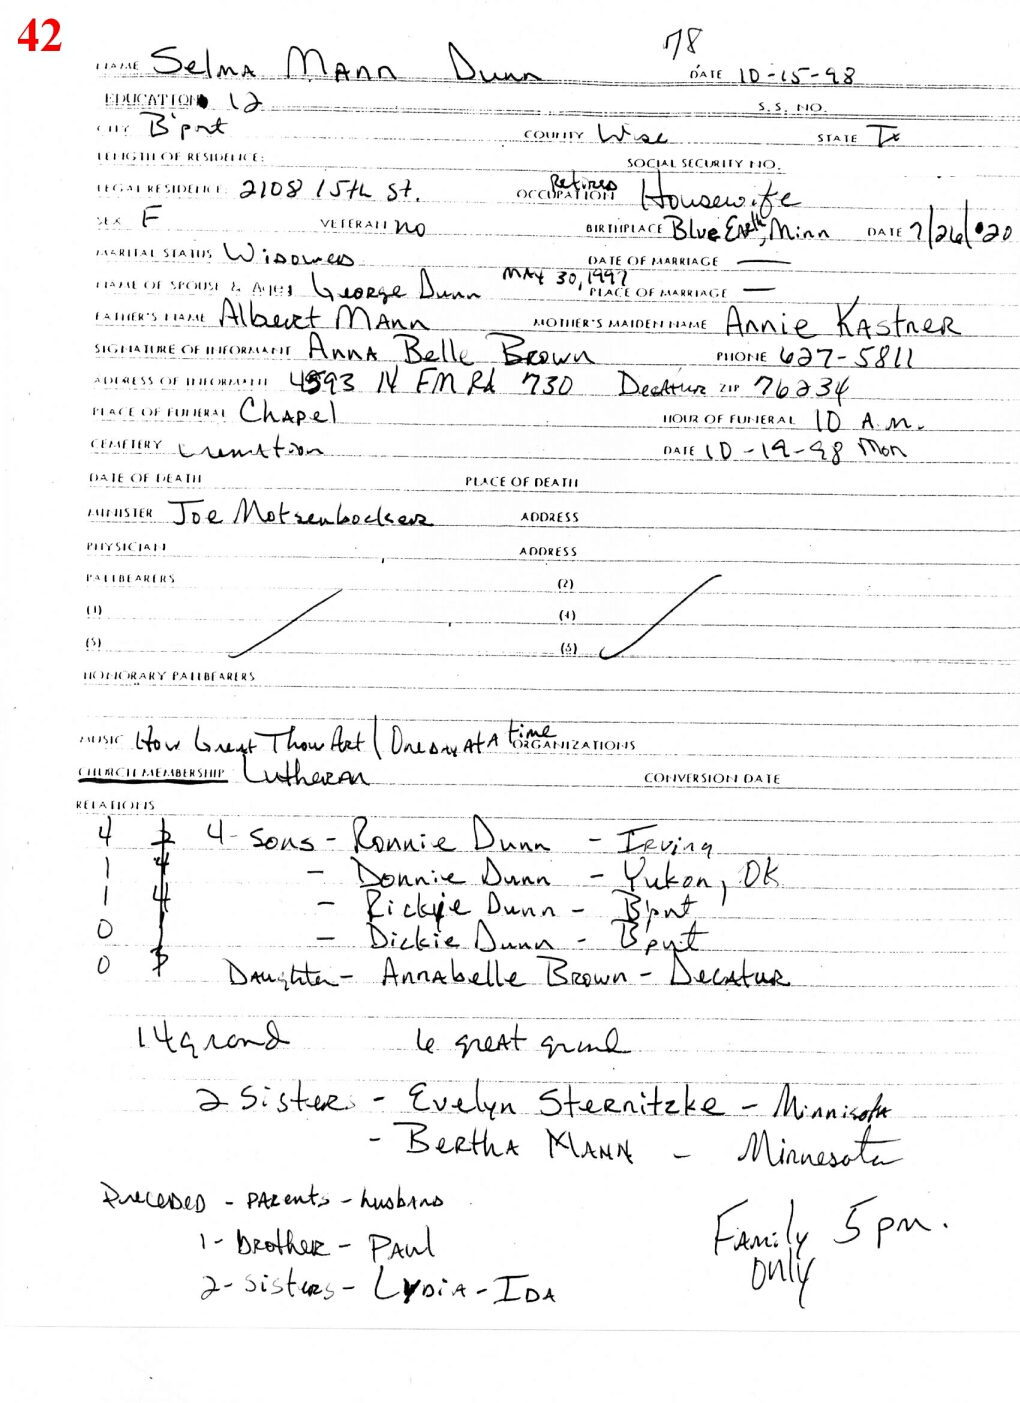 42
78
NAME Selma Mann Dunn DATE 10-15-98
EDUCATION 12 S.S. NO.
CITY B'port COUNTY Wise STATE Tx
LENGTH OF RESIDENCE: SOCIAL SECURITY NO.
LEGAL RESIDENCE: 2108 15th St. OCCUPATION Retired Housewife
SEX F VETERAN no BIRTHPLACE Blue Earth, Minn DATE 7/26/20
MARITAL STATUS Widowed DATE OF MARRIAGE —
NAME OF SPOUSE & George Dunn May 30, 1997 PLACE OF MARRIAGE —
FATHER'S NAME Albert Mann MOTHER'S MAIDEN NAME Annie Kastner
SIGNATURE OF INFORMANT Anna Belle Brown PHONE 627-5811
ADDRESS OF INFORMANT 4593 N FM Rd 730 Decatur ZIP 76234
PLACE OF FUNERAL Chapel HOUR OF FUNERAL 10 A.M.
CEMETERY Cremation DATE 10-19-98 Mon
DATE OF DEATH PLACE OF DEATH
MINISTER Joe Motsenbocker ADDRESS
PHYSICIAN ADDRESS
PALLBEARERS (2)
(1) (4)
(5) (6)
HONORARY PALLBEARERS
MUSIC How Great Thou Art / One Day At A time ORGANIZATIONS
CHURCH MEMBERSHIP Lutheran CONVERSION DATE
RELATIONS
4 4-Sons - Ronnie Dunn - Irving
1 4 - Donnie Dunn - Yukon, OK
1 4 - Rickie Dunn - B'port
0 - Dickie Dunn - B'port
0 Daughter - Annabelle Brown - Decatur
14 grand 6 great grand
2 Sisters - Evelyn Sternitzke - Minnisota
- Bertha Mann - Minnesota
Preceded - parents - husband
1 - brother - Paul
2 - sisters - Lydia - Ida
Family 5 pm.
only